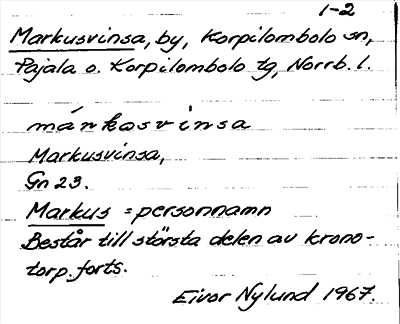 1-2
Markusvinsa, by, Korpilombolo sn,
Pajala o. Korpilombolo tg, Norrb. l.
márkasvinsa
Markusvinsa,
Gn 23.
Markus = personnamn
Består till största delen av krono-
torp. forts.
Eivor Nylund 1967.